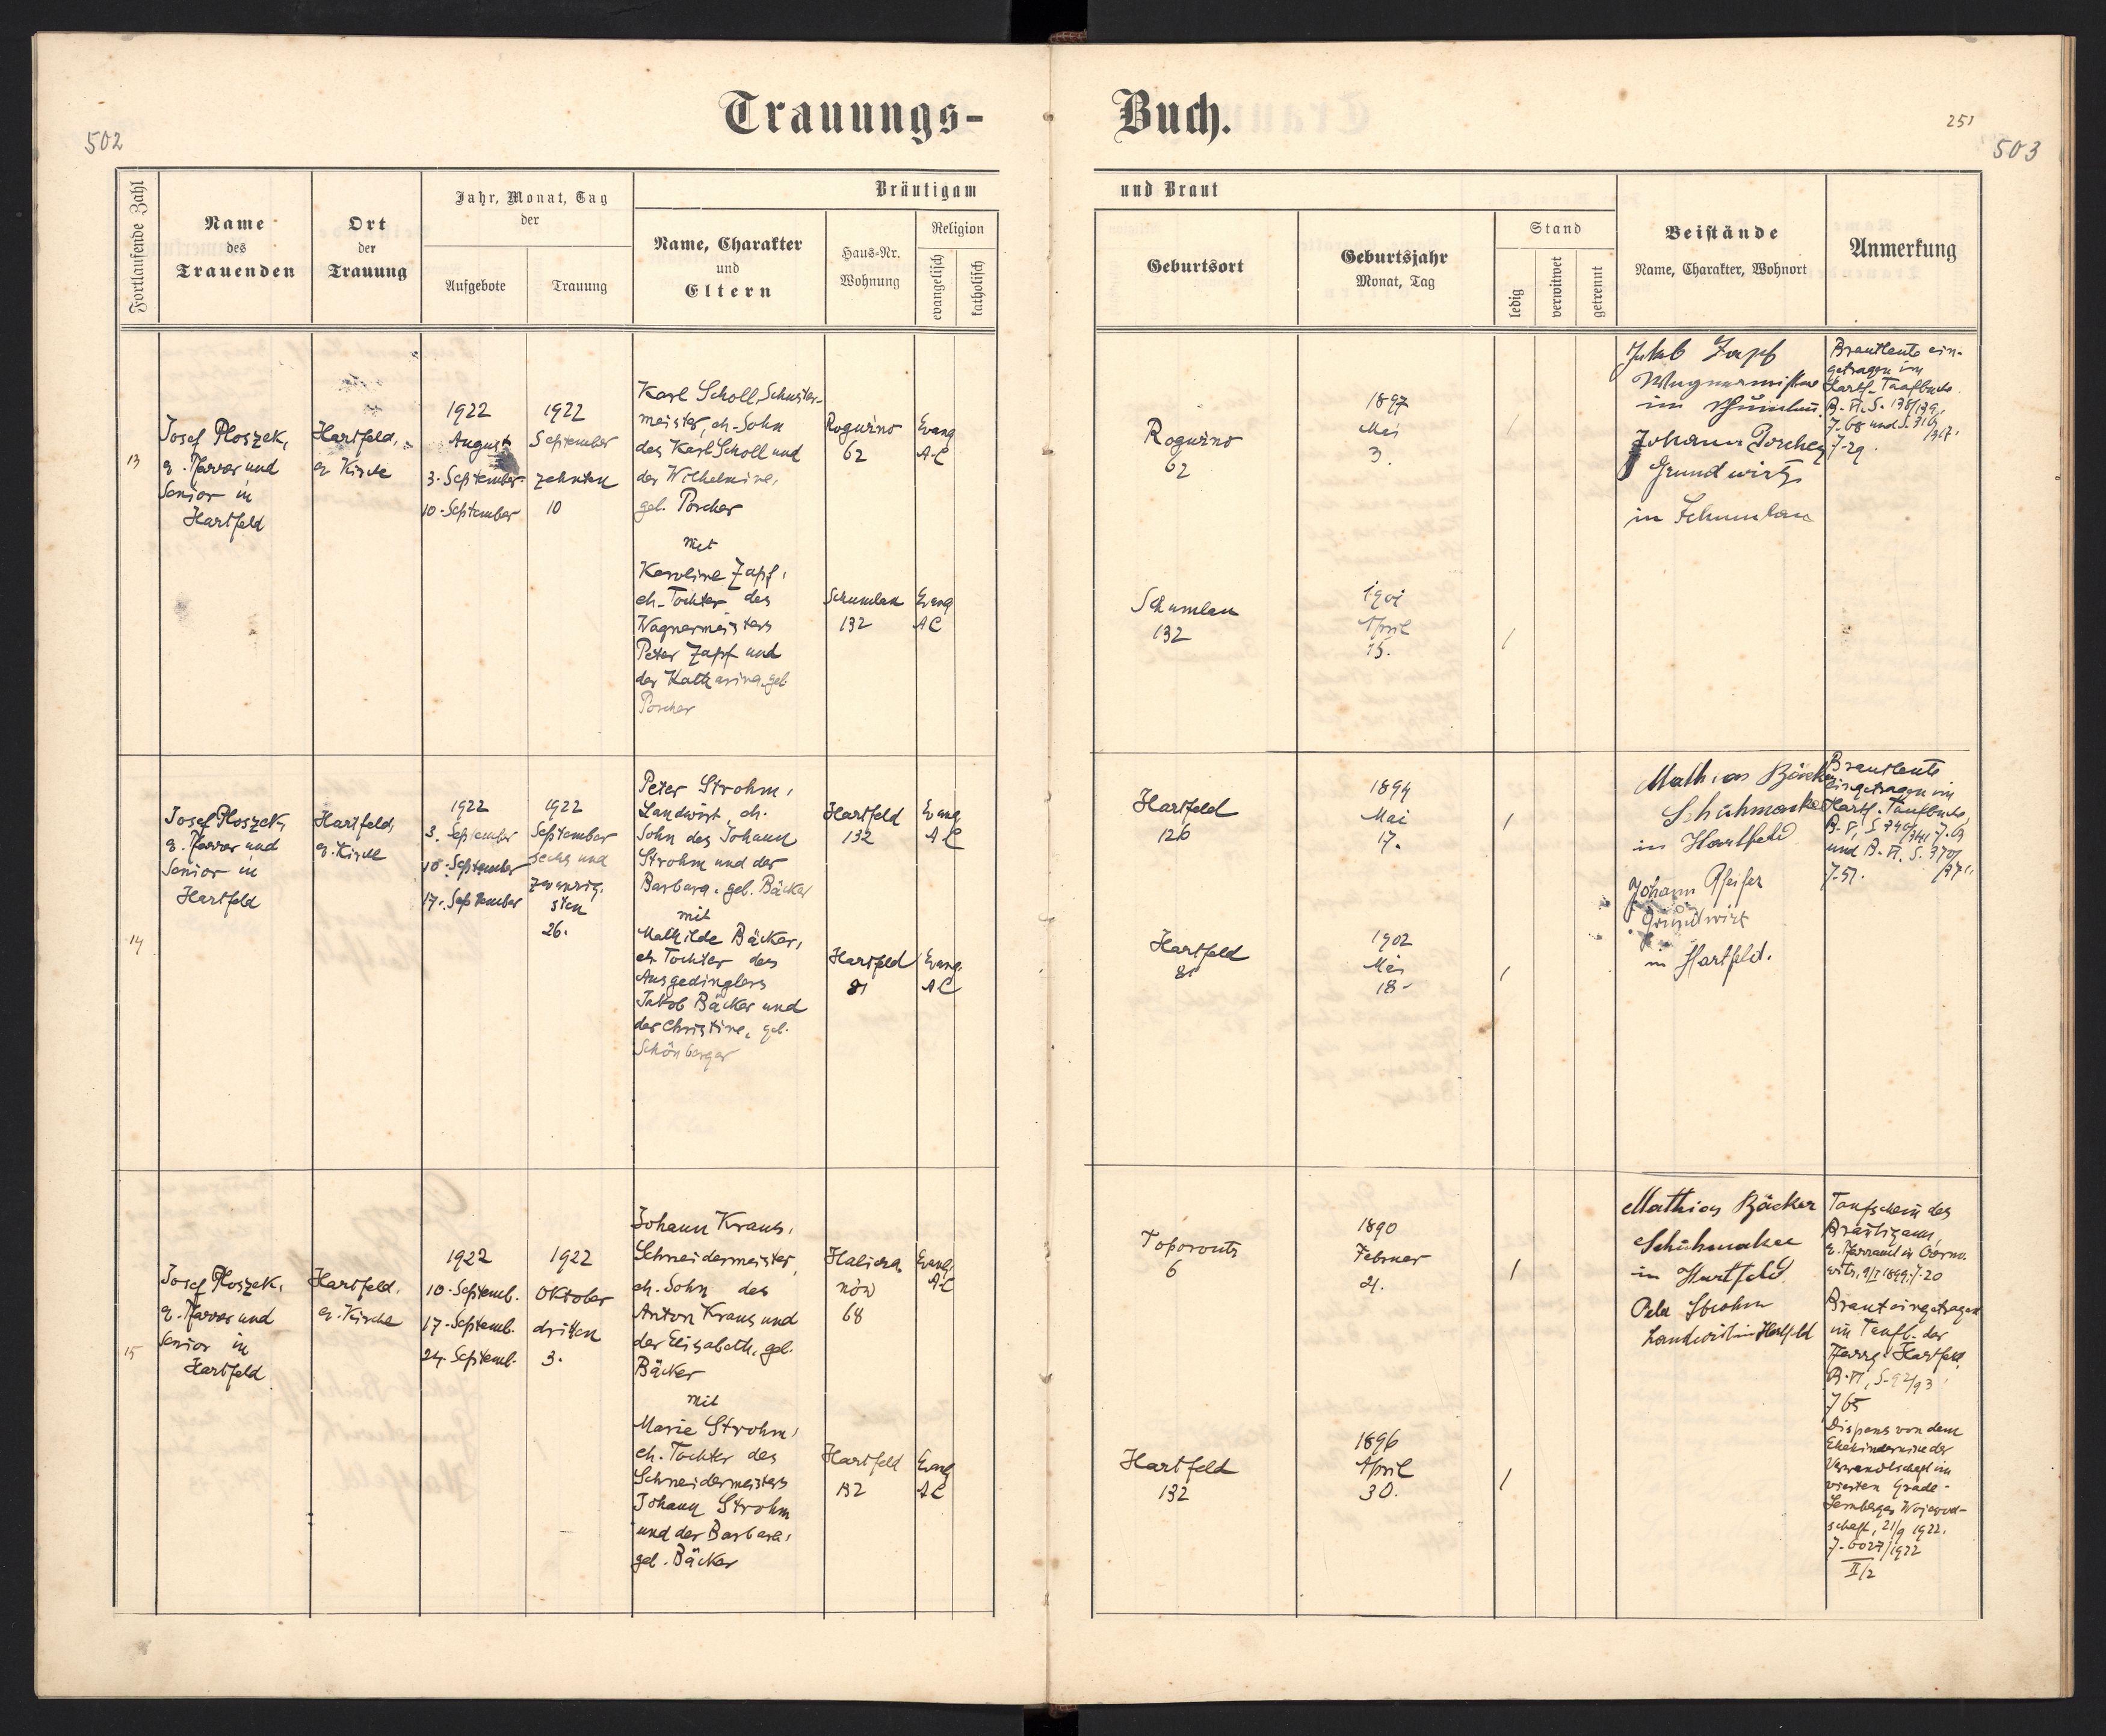 Trauungs-
Buch.
502
251
503
Fortlaufende Zahl
Name
des
Trauenden
Ort
der
Trauung
Jahr, Monat, Tag
der
Aufgebote
Trauung
Bräutigam
Name, Charakter
und
Eltern
Haus-Nr.
Wohnung
Religion
evangelisch
katholisch
und Braut
Geburtsort
Geburtsjahr
Monat, Tag
Stand
ledig
verwitwet
getrennt
Beistände
Name, Charakter, Wohnort
Anmerkung
13
Josef Ploszek,
e. Pfarrer und
Senior in
Hartfeld
Hartfeld,
e. Kirche
1922
August
3. September
10. September
1922
September
zehnten
10
Karl Scholl, Schuster-
meister, eh. Sohn
des Karl Scholl und
der Wilhelmine,
geb. Porcher
mit
Karoline Zapf,
eh. Tochter des
Wagnermeisters
Peter Zapf und
der Katharina, geb.
Porcher
Rogużno
62
Evang
A.C
Schumlau
132
Evang
A C
Rogużno
62
1897
Mai
3.
Schumlau
132
1901
April
15.
Jakob Zapf
Wagnermeister
in Schumlau.
Johann Porcher
Grundwirt
in Schumlau
Brautleute ein-
getragen im
Hartf. Taufbuch
B. VI. S. 138/139,
Z. 68 und S. 316
/317,
Z. 29.
14
Josef Ploszek,
e. Pfarrer und
Senior in
Hartfeld
Hartfeld,
e. Kirche
1922
3. September
10. September
17. September
1922
September
sechs und
zwanzig-
sten
26.
Peter Strohm,
Landwirt, eh.
Sohn des Johann
Strohm und der
Barbara, geb. Bäcker
mit
Mathilde Bäcker,
eh. Tochter des
Ausgedinglers
Jakob Bäcker und
der Christine, geb.
Schönberger
Hartfeld
132
Evang
A C
Hartfeld
81
Evang.
A C
Hartfeld
126
1894
Mai
17.
Hartfeld
81
1902
Mai
18.
Mathias Bäcker
Schuhmacher
in Hartfeld
Johann Pfeifer
Grundwirt
in Hartfeld.
Brautleute
eingetragen im
Hartf. Taufbuch,
B. V, S. 340/341
und B. VI. S. 370/
/371,
Z. 51.
15
Josef Ploszek,
e. Pfarrer und
Senior in
Hartfeld
Hartfeld,
e. Kirche
1922
10. Septemb.
17. Septemb.
24. Septemb.
1922
Oktober
dritten
3.
Johann Kraus,
Schneidermeister,
eh. Sohn des
Anton Kraus und
der Elisabeth, geb.
Bäcker
mit
Marie Strohm,
eh. Tochter des
Schneidermeisters
Johann Strohm
und der Barbara,
geb. Bäcker
Halicza
nów
68
Evang.
A C
Hartfeld
132
Evang
A C
Toporoutz
6
1890
Februar
4.
Hartfeld
132
1896
April
30.
Mathias Bäcker
Schuhmacher
in Hartfeld
Peter Strohm
Landwirt in Hartfeld
Taufschein des
Bräutigams,
e. Pfarramt in Czerno-
witz,
Z. 20
Braut eingetragen
im Taufb. der
Pfarrg. Hartfeld,
B. VI, S. 92/93,
Z 65
Dispens von dem
Ehehindernisse der
Verwandtschaft im
vierten Grade -
Lemberger Wojewod-
schaft, 21/9 1922,
Z. 6027/1922
II/2